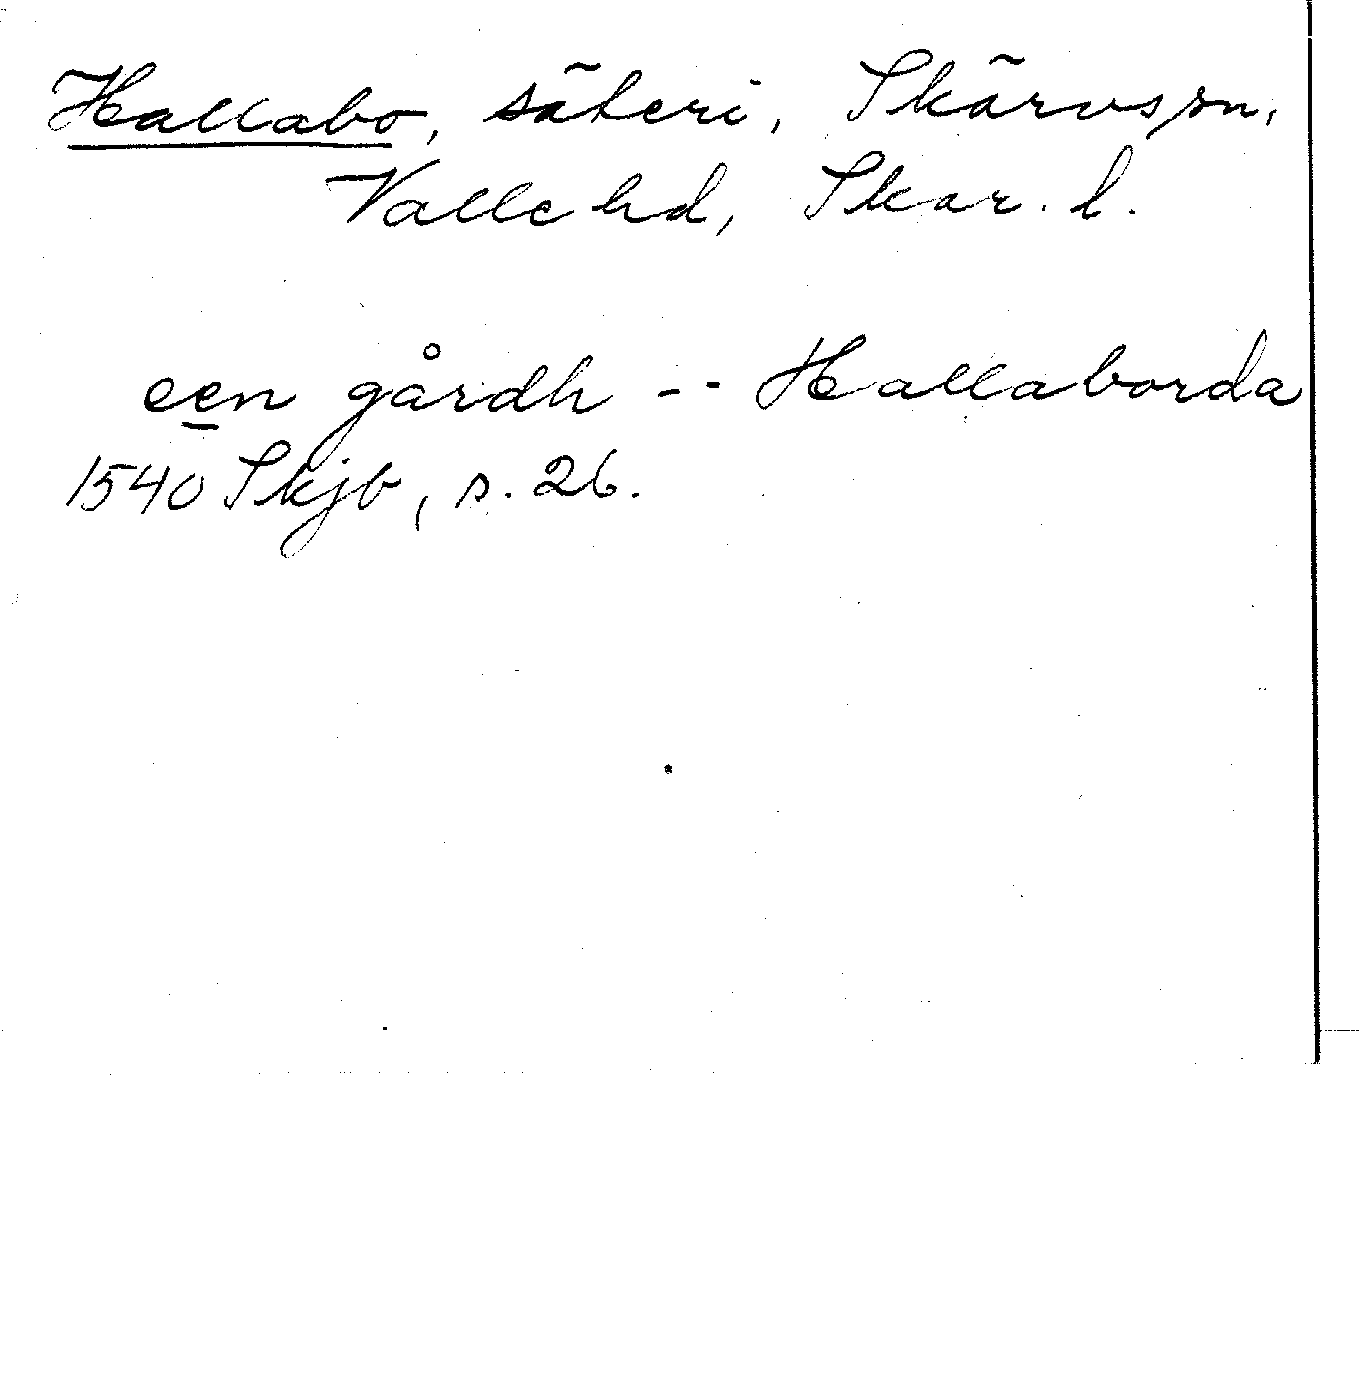 Hallabo, säteri, Skärvs sn,
Valle hd, Skar. l.
een gårdh -- Hallaborda
1540 Skjb, s. 26.